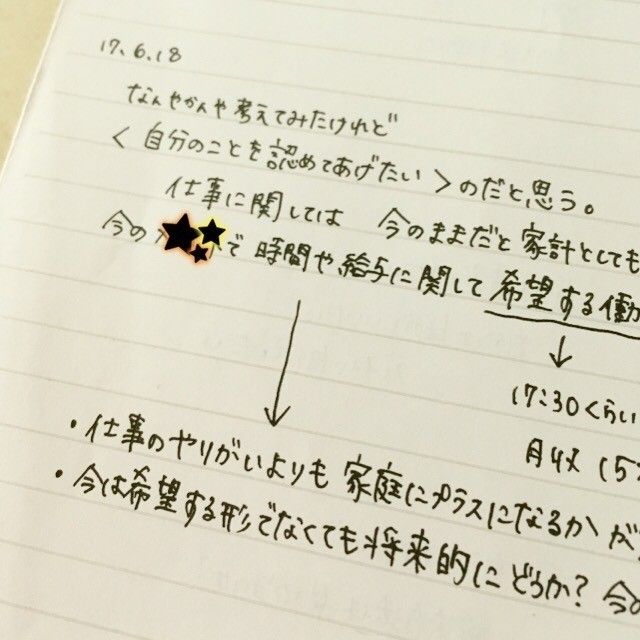 17.6.18
なんやかんや考えてみたけれど
＜自分のことを認めてあげたい＞のだと思う。
仕事に関しては 今のままだと家計としても
今の で時間や給与に関して希望する働
17:30くらい
月収（5
・仕事のやりがいよりも家庭にプラスになるかが
・今は希望する形でなくても将来的にどうか？今